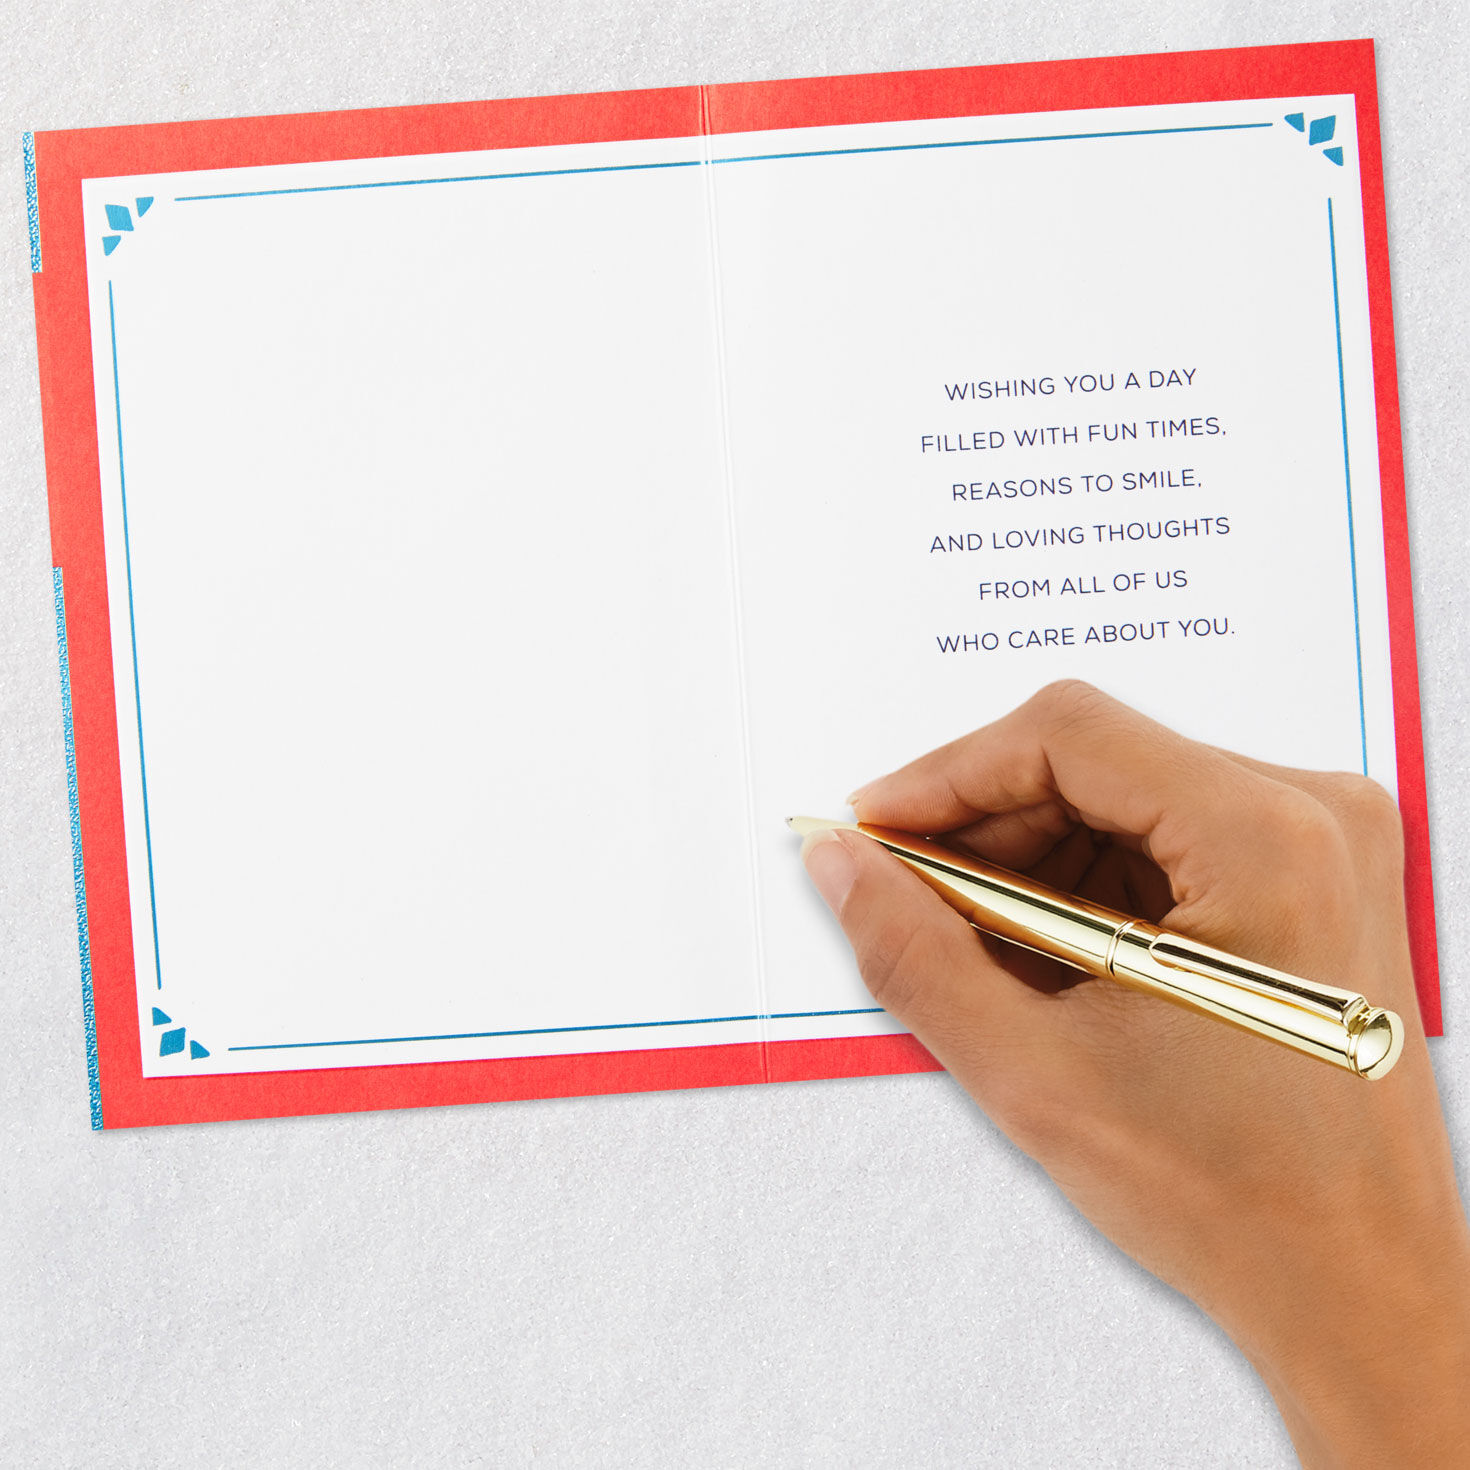 WISHING YOU A DAY
FILLED WITH FUN TIMES,
REASONS TO SMILE,
AND LOVING THOUGHTS
FROM ALL OF US
WHO CARE ABOUT YOU.